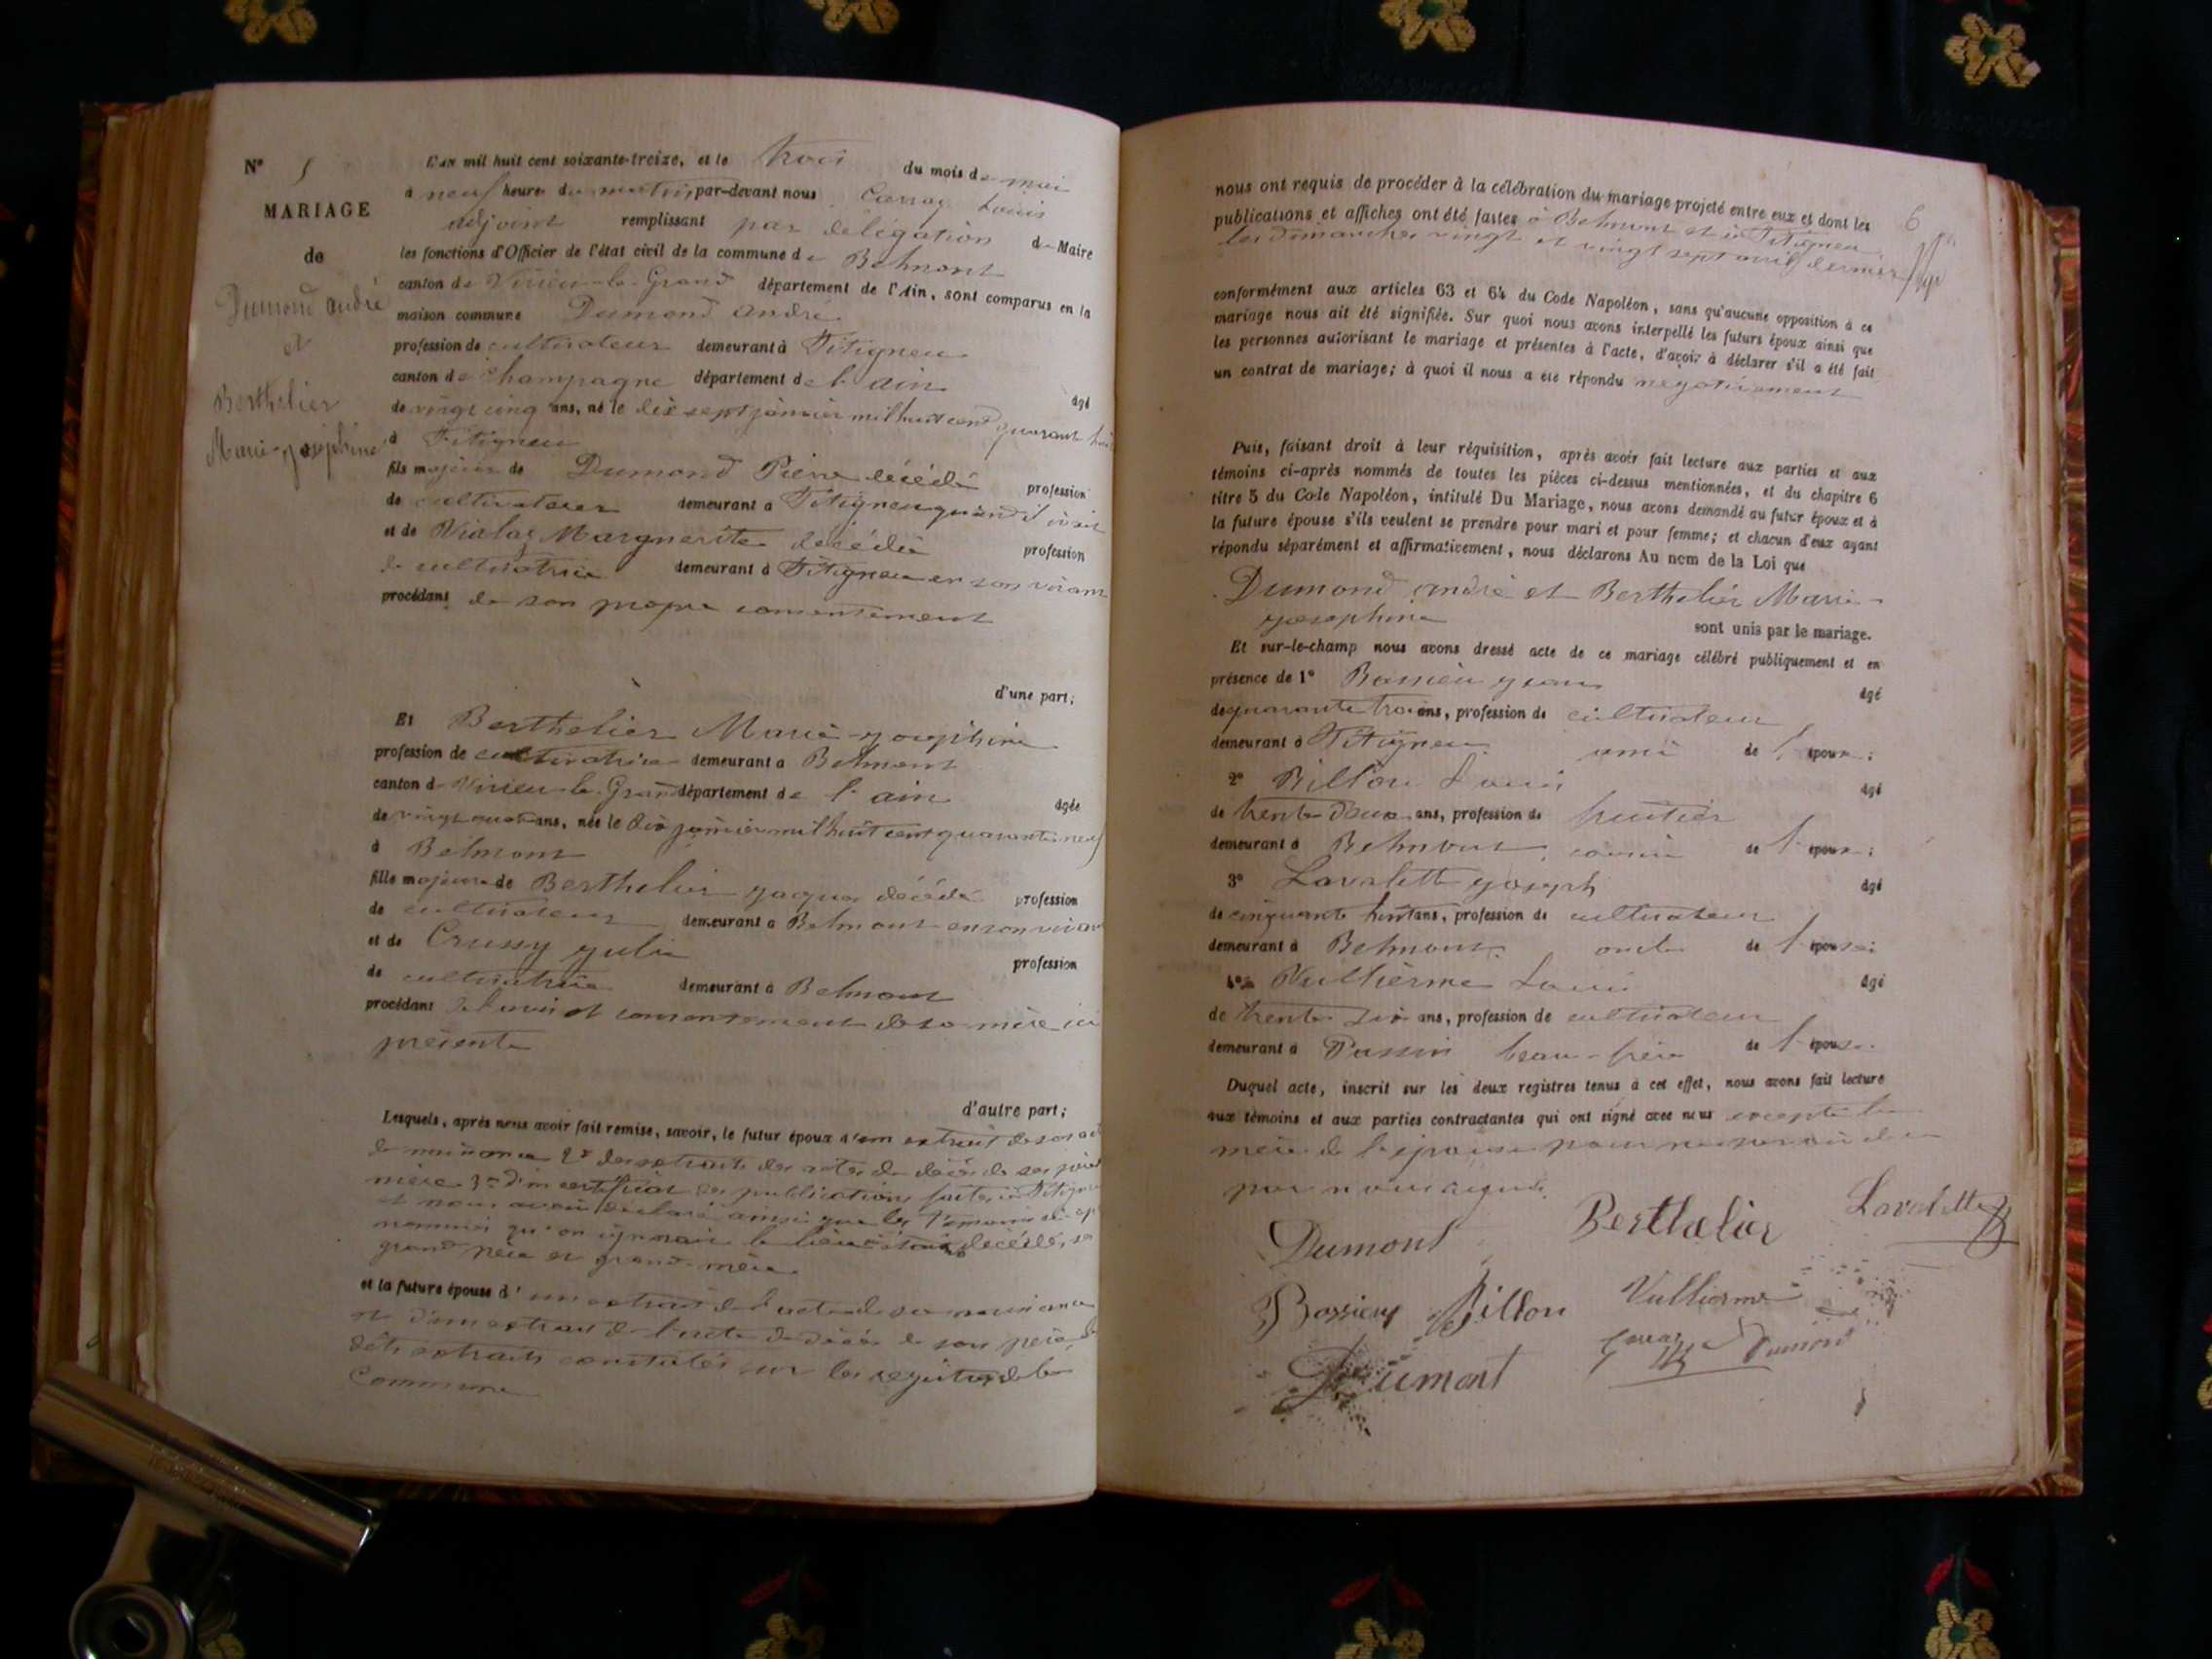 N° 5
MARIAGE
de
Dumond andré
et
Berthelier
Marie-josephine
L'an mil huit cent soixante-treize, et le trois du mois de mai
à neuf heures du matin par-devant nous Carray Louis
adjoint remplissant par délégation de Maire
les fonctions d'Officier de l'état civil de la commune de Belmont
canton de Virieu-le-Grand département de l'Ain, sont comparus en la
maison commune Dumond andré
profession de cultivateur demeurant à Fitigneu
canton de Champagne département de l'ain âgé
de vingt cinq ans, né le dix sept janvier mil huit cent quarante huit
à Fitigneu
fils majeur de Dumond Pierre décédé profession
de cultivateur demeurant à Fitigneu quand il vivait
et de Vialaz Marguerite décédée profession
de cultivatrice demeurant à Fitigneu en son vivant
procédant de son propre consentement
d'une part;
Et Berthelier Marie-josephine
profession de cultivatrice demeurant à Belmont
canton de Virieu-le-Grand département de l'ain âgée
de vingt quatre ans, née le dix janvier mil huit cent quarante neuf
à Belmont
fille majeure de Berthelier jaques décédé profession
de cultivateur demeurant à Belmont en son vivant
et de Crussy julie profession
de cultivatrice demeurant à Belmont
procédant de l'avis et consentement de sa mère ici
présente
d'autre part;
Lesquels, après nous avoir fait remise, savoir, le futur époux d'un extrait de son acte
de naissance 2° des extraits des actes de décès de ses père
mère 3° d'un certificat de publications faites à Fitigneu
et nous avoir déclaré ainsi que les témoins
nommés qu'on ignorait le lieu décédés
grand père et grand-mère
et la future épouse d'un extrait de l'acte de sa naissance
et d'un extrait de l'acte de décès de son père,
extraits constatés sur les registres de la
Commune
6
nous ont requis de procéder à la célébration du mariage projeté entre eux et dont les
publications et affiches ont été faites à Belmont et à Fitigneu
les dimanches vingt et vingt sept avril dernier
conformément aux articles 63 et 64 du Code Napoléon, sans qu'aucune opposition à ce
mariage nous ait été signifiée. Sur quoi nous avons interpellé les futurs époux ainsi que
les personnes autorisant le mariage et présentes à l'acte, d'avoir à déclarer s'il a été fait
un contrat de mariage; à quoi il nous a été répondu négativement
Puis, faisant droit à leur réquisition, après avoir fait lecture aux parties et aux
témoins ci-après nommés de toutes les pièces ci-dessus mentionnées, et du chapitre 6
titre 5 du Code Napoléon, intitulé Du Mariage, nous avons demandé au futur époux et à
la future épouse s'ils veulent se prendre pour mari et pour femme; et chacun d'eux ayant
répondu séparément et affirmativement, nous déclarons Au nom de la Loi que
Dumond andré et Berthelier Marie-
josephine sont unis par le mariage.
Et sur-le-champ nous avons dressé acte de ce mariage célébré publiquement et en
présence de 1° Bossieu jean âgé
de quarante trois ans, profession de cultivateur
demeurant à Fitigneu ami de l'époux;
2° Billon Louis âgé
de trente deux ans, profession de
demeurant à Belmont, cousin de l'épouse;
3° Lavalette joseph âgé
de cinquante huit ans, profession de cultivateur
demeurant à Belmont oncle de l'épouse;
4° Vullierme Louis âgé
de trente six ans, profession de cultivateur
demeurant à Passin beau-frère de l'épouse.
Duquel acte, inscrit sur les deux registres tenus à cet effet, nous avons fait lecture
aux témoins et aux parties contractantes qui ont signé avec nous excepté la
mère de l'épouse pour ne savoir de ce
par nous requise.
Dumont Berthelier Lavalette
Bossieux Billon Vullierme
Dumont Carray Dumont